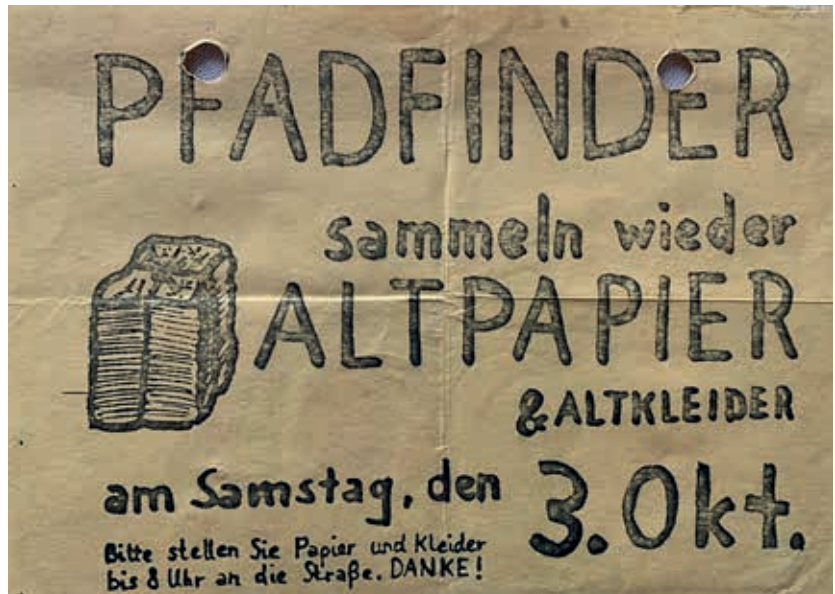 PFADFINDER
sammeln wieder
ALTPAPIER
& ALTKLEIDER
am Samstag, den 3. Okt.
Bitte stellen Sie Papier und Kleider
bis 8 Uhr an die Straße. DANKE!